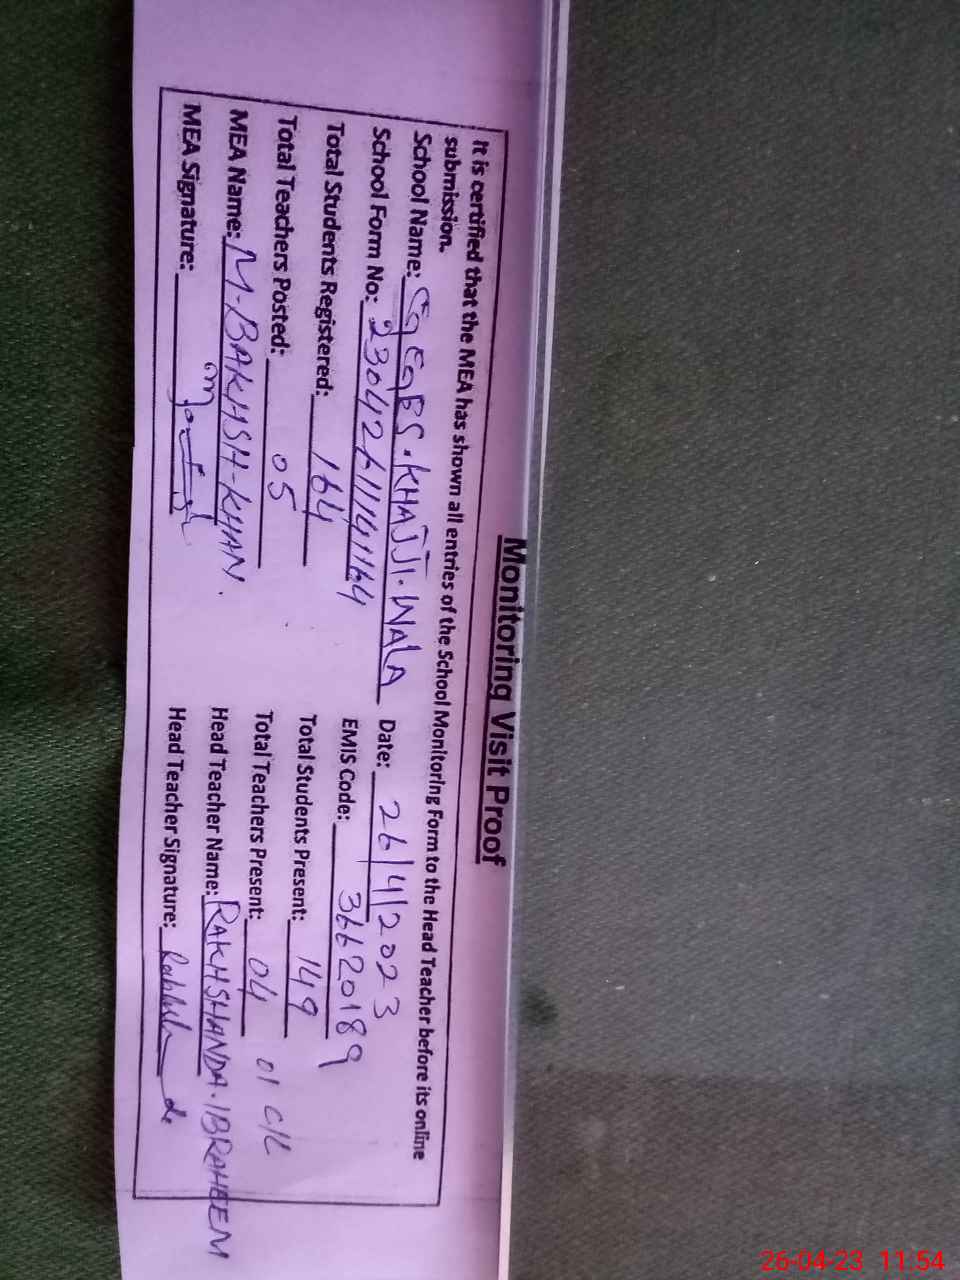 Monitoring Visit Proof
It is certified that the MEA has shown all entries of the School Monitoring Form to the Head Teacher before its online
submission.
School Name: GGBS. KHAJJI. WALA Date: 26/4/2023
School Form No: EMIS Code: 36620189
Total Students Registered: 164 Total Students Present: 149
Total Teachers Posted: 05 Total Teachers Present: 04 01 C/L
MEA Name: M-BAKHSH-KHAN. Head Teacher Name: RAKHSHANDA. IBRAHEEM
MEA Signature: Head Teacher Signature:
26-04-23 11:54